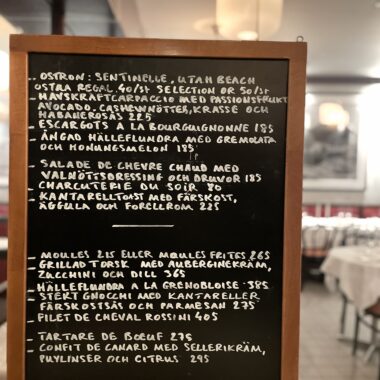 _ OSTRON: SENTINELLE, UTAH BEACH
OSTRA REGAL 40/ST SELECTION OR 50/ST
_ HAVSKRÄFTCARPACCIO MED PASSIONSFRUKT
AVOCADO, CASHEWNÖTTER, KRASSE OCH
HABANEROSÅS 225
_ ESCARGOTS A LA BOURGUIGNONNE 185
_ ÅNGAD HÄLLEFLUNDRA MED GREMOLATA
OCH HONUNGSMELON 185
_ SALADE DE CHEVRE CHAUD MED
VALNÖTTSDRESSING OCH DRUVOR 185
_ CHARCUTERIE DU SOIR 80
_ KANTARELLTOAST MED FÄRSKOST,
ÄGGULA OCH FORELLROM 225
_ MOULES 215 ELLER MOULES FRITES 265
_ GRILLAD TORSK MED AUBERGINEKRÄM,
ZUCCHINI OCH DILL 365
_ HÄLLEFLUNDRA A LA GRENOBLOISE 385
_ STEKT GNOCCHI MED KANTARELLER
FÄRSKOSTSÅS OCH PARMESAN 275
_ FILET DE CHEVAL ROSSINI 405
_ TARTARE DE BŒUF 275
_ CONFIT DE CANARD MED SELLERIKRÄM,
PUYLINSER OCH CITRUS 295